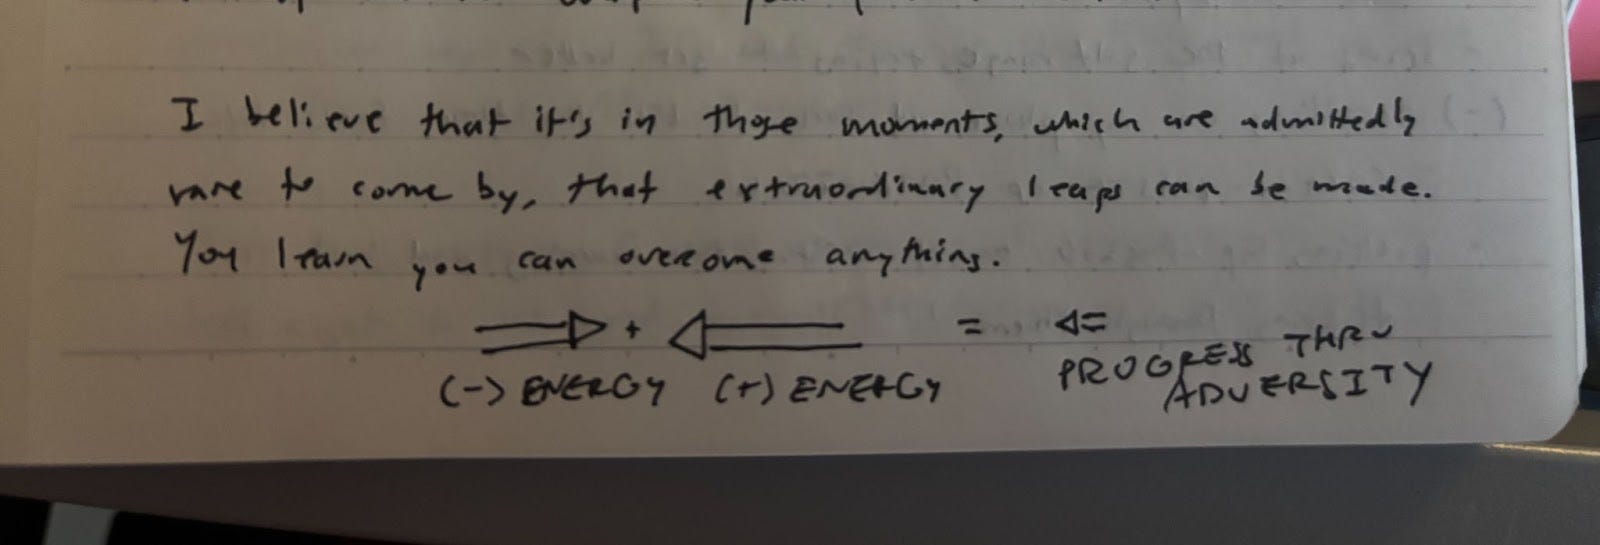 I believe that it's in those moments, which are admittedly
rare to come by, that extraordinary leaps can be made.
You learn you can overcome anything.
+ = 
(-) ENERGY (+) ENERGY PROGRESS THRU
ADVERSITY